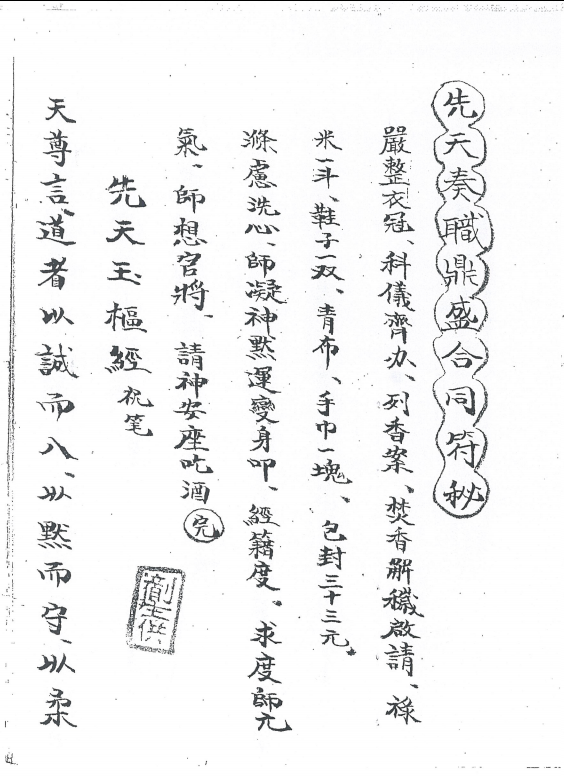 先天奏職鼎盛合同符秘
嚴整衣冠、科儀齊办、列香案、焚香解穢啟請、祿
米一斗、鞋子一双、青布、手巾一塊、包封三十三元。
滌慮洗心、師凝神默運變身叩、經籍度、求度師元
氣、師想官將、請神安座吃酒 完
先天玉樞經 祝笔
天尊言、道者以誠而入、以默而守、以柔